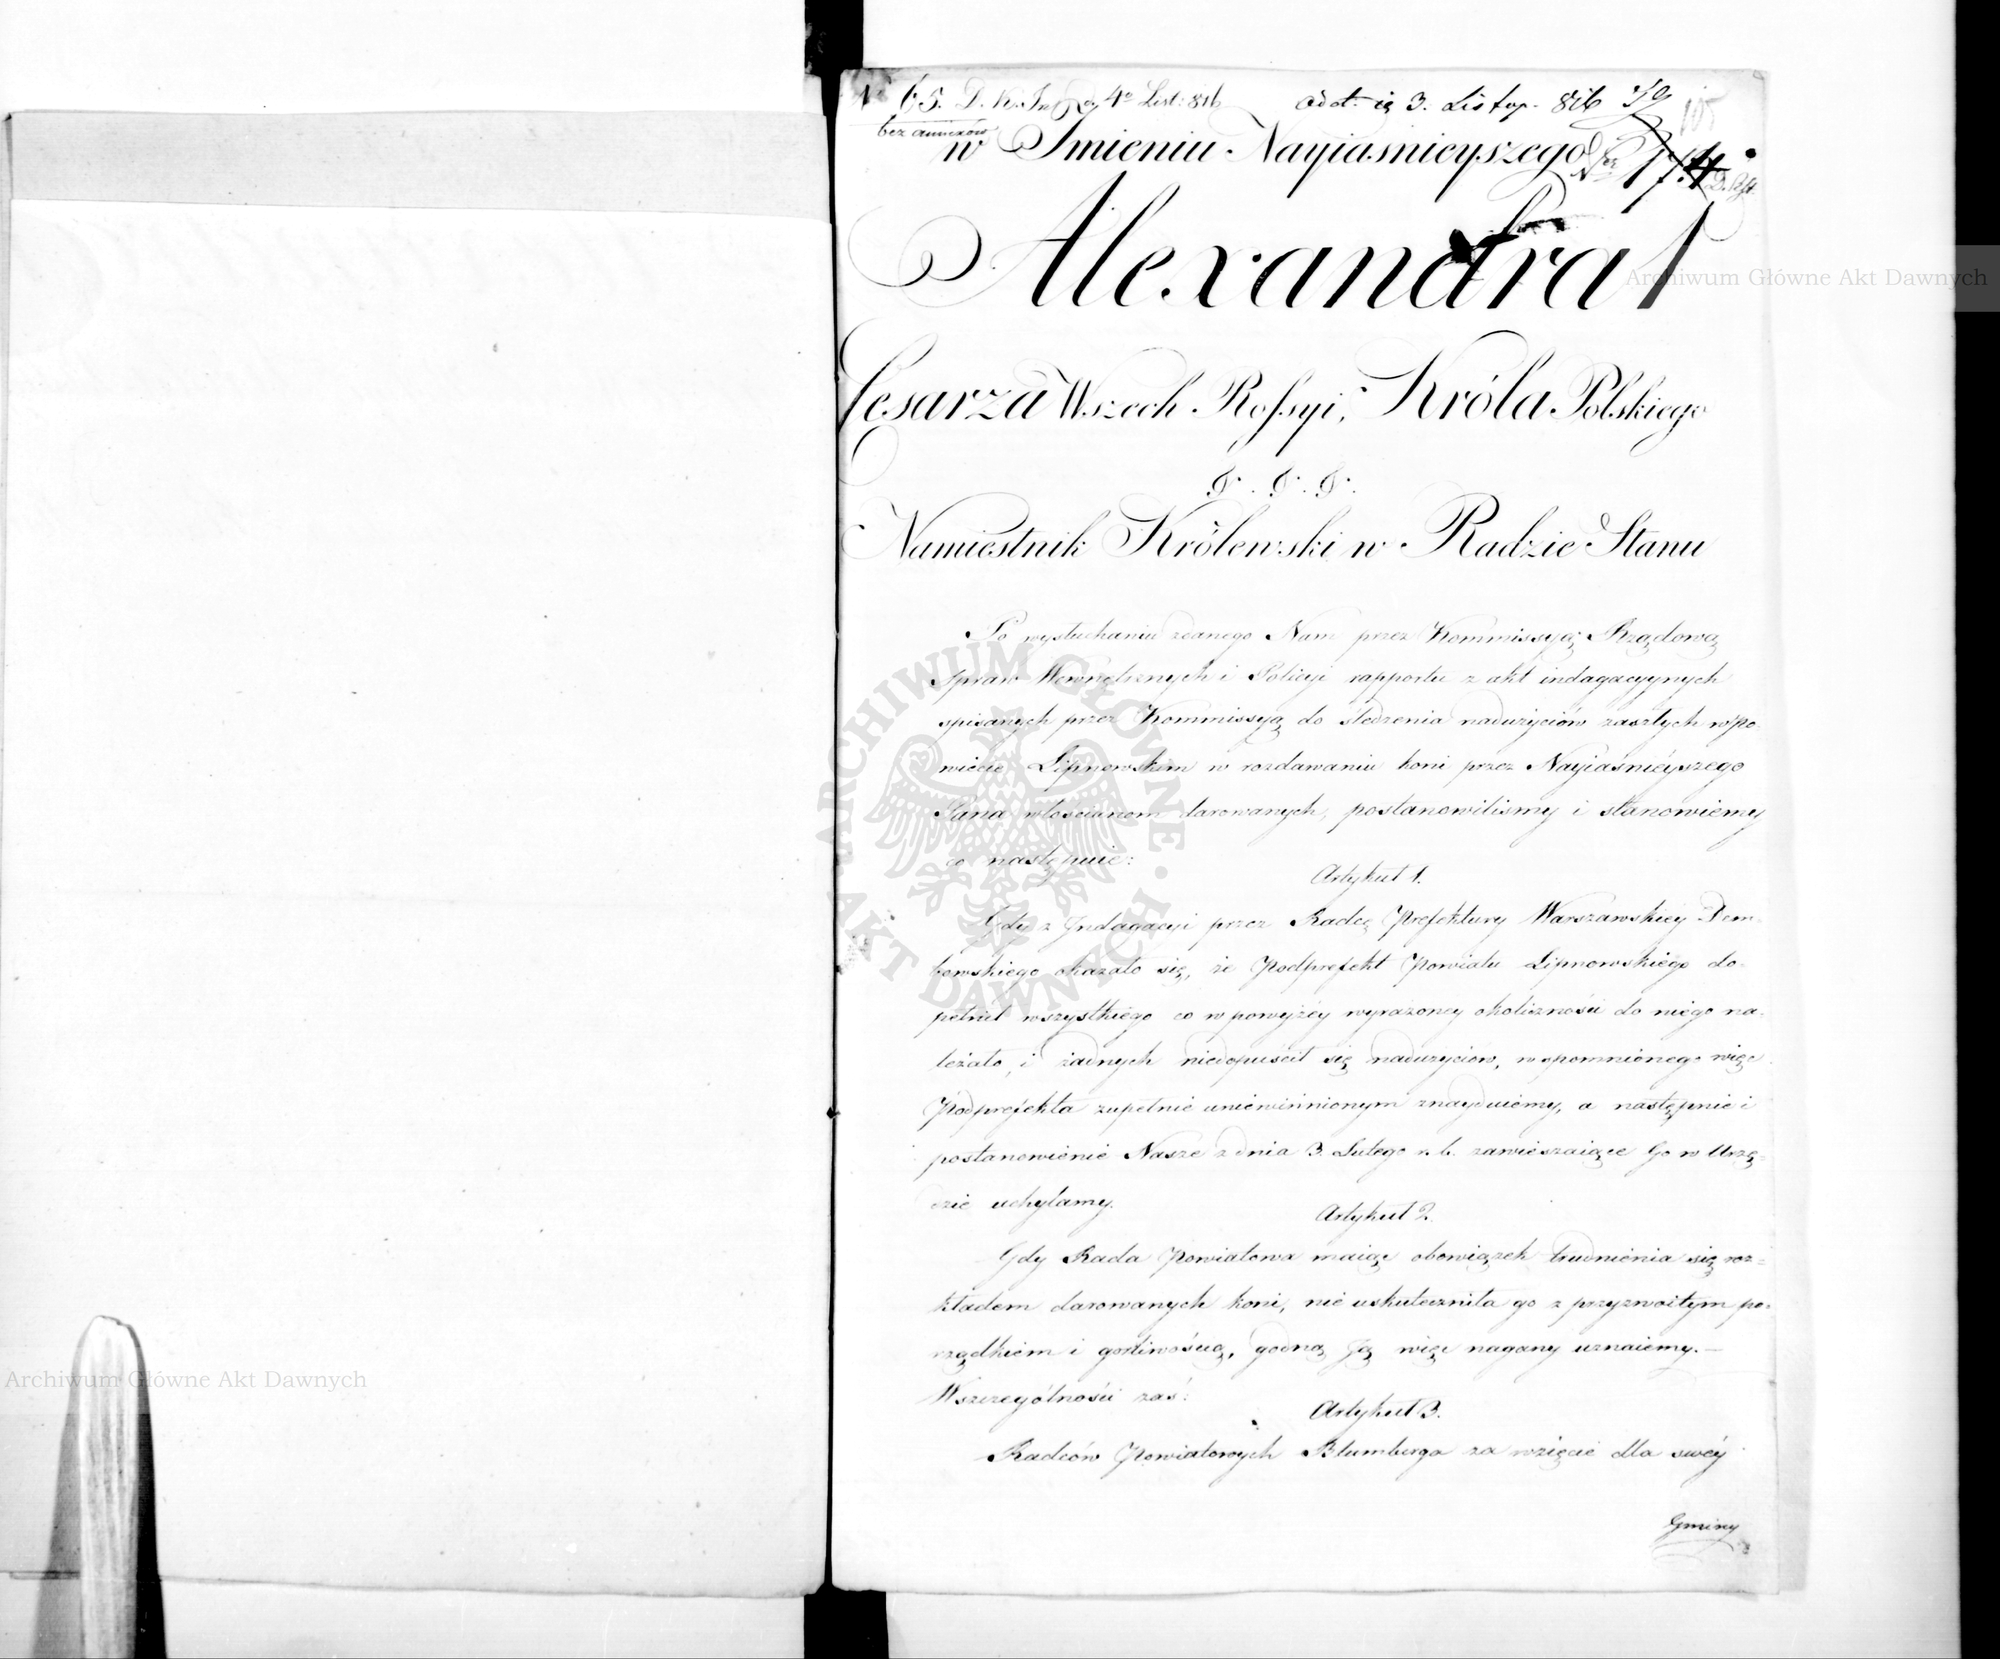 No 65. D. K. 4o List: 816
odot. ią 3. Listop. 816
105
bez annexów
w Imieniu Nayiasnieyszego
Nr 174
Alexandra I
Cesarza Wszech Rossyi, Króla Polskiego
&. &. &.
Namiestnik Królewski w Radzie Stanu
Po wysłuchaniu zdanego Nam przez Kommissyią Rządową
Spraw Wewnętrznych i Policyi rapportu z akt indagacyynych
spisanych przez Kommissyą do śledzenia nadużyciów zaszłych w po-
wiecie Lipnowskim w rozdawaniu koni przez Nayiaśnieyszego
Pana włościanom darowanych, postanowiliśmy i stanowiemy
co następuie:
Artykuł 1.
Gdy z Indagacyi przez Radcę Prefektury Warszawskiey Dem-
bowskiego okazało się, że Podprefekt Powiatu Lipnowskiego do-
pełnił wszystkiego co w powyżéy wyrażoney okoliczności do niego na-
leżało, i żadnych niedopuścił się nadużyciow, wspomnionego więc
Podprefekta zupełnie uniewinnionym znayduiemy, a następnie i
postanowienie Nasze z dnia 3. Lutego r. b. zawieszaiące Go w Urzę-
dzie uchylamy.
Artykuł 2.
Gdy Rada Powiatowa maiąc obowiązek trudnienia się roz-
kładem darowanych koni, nie uskuteczniła go z przyzwoitym po-
rządkiem i gorliwością, godną Ją więc nagany uznaiemy.—
Wszczególności zaś:
Artykuł 3.
Radców Powiatowych Blumberga za wzięcie dla swéy
Gminy
Archiwum Główne Akt Dawnych
Archiwum Główne Akt Dawnych
ARCHIWUM GŁÓWNE AKT DAWNYCH